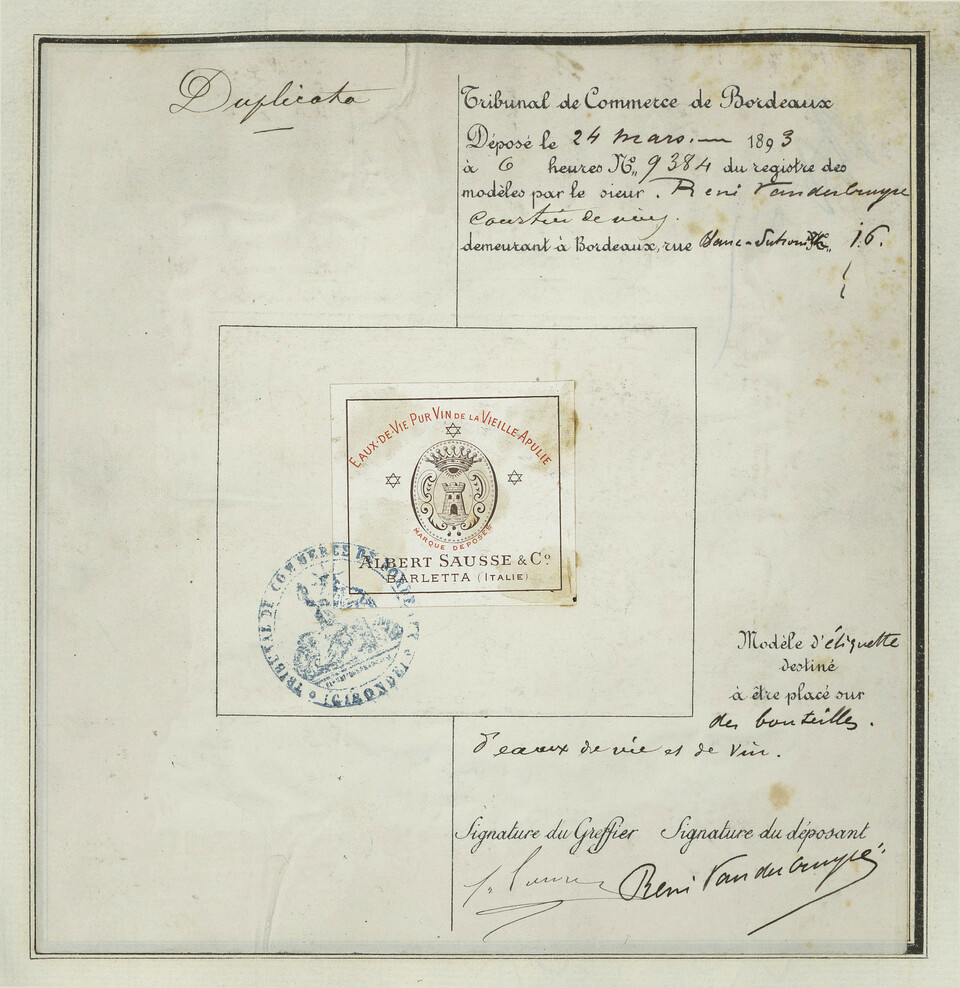 Duplicata
Tribunal de Commerce de Bordeaux
Déposé le 24 mars 1893
à 6 heures N° 9384 du registre des
modèles par le sieur René Vanderbruyse
Courtier de vins.
demeurant à Bordeaux, rue 16.
EAUX-DE-VIE PUR VIN DE LA VIEILLE APULIE
MARQUE DÉPOSÉE
ALBERT SAUSSE & Cº
BARLETTA (ITALIE)
TRIBUNAL DE COMMERCE DE BORDEAUX
(GIRONDE)
Modèle d'étiquette
destiné
à être placé sur
des bouteilles.
d'eaux de vie et de vin.
Signature du Greffier Signature du déposant
René Vanderbruyse